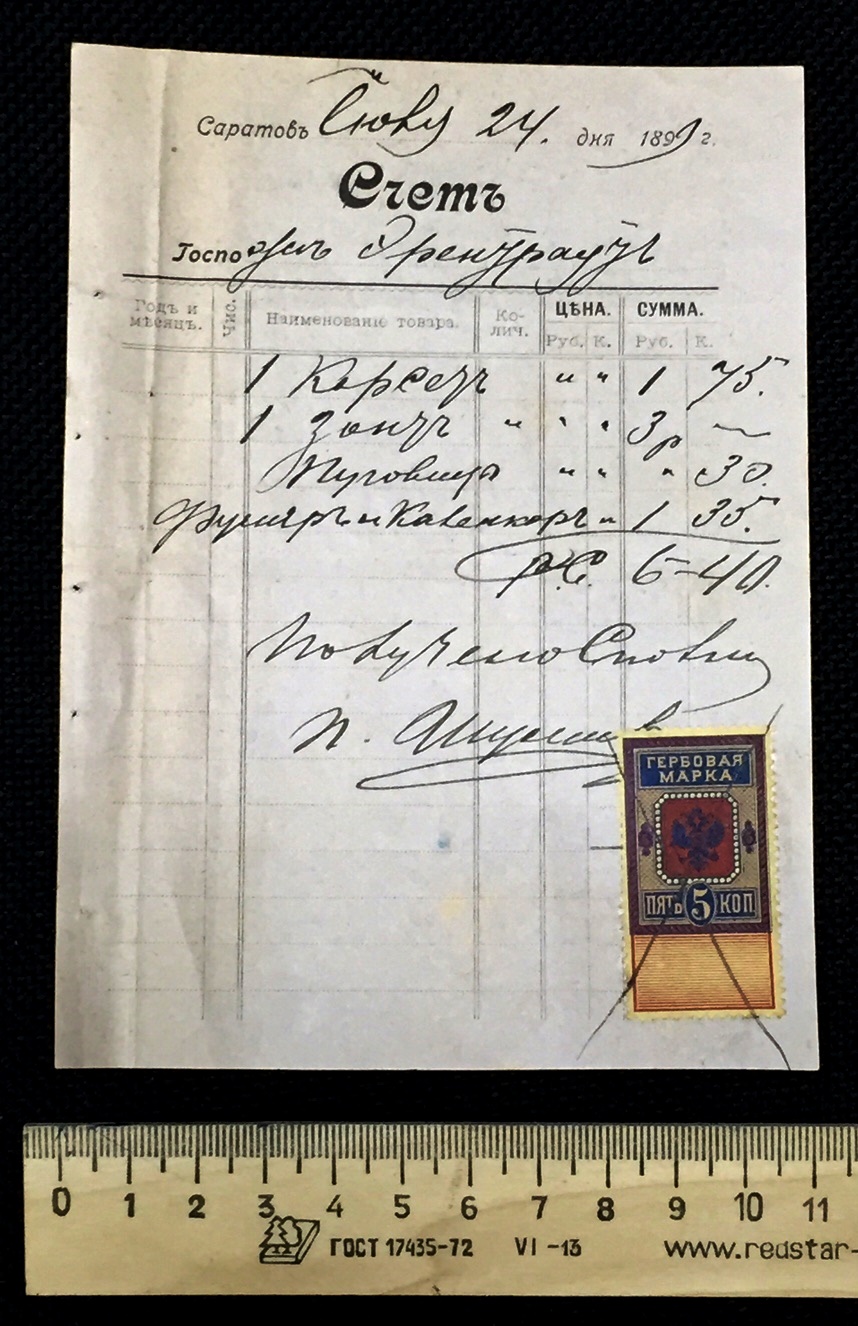 Саратовъ Іюль 24. дня 1899 г.
Счетъ
Госпожѣ Эрентраутъ
Годъ и мѣсяцъ. Чис. Наименованіе товара. Ко-лич. ЦѢНА. СУММА.
Руб. К. Руб. К.
1 Корсетъ " " 1 75.
1 Зонтъ " " " 3р —
Пуговицы " " " 30.
Фуляръ и Каленкоръ " 1 35.
Р.С. 6-40.
Получено Сполна
П.
ГЕРБОВАЯ
МАРКА
ПЯТЬ 5 КОП
0 1 2 3 4 5 6 7 8 9 10 11
ГОСТ 17435-72 VI -13 www.redstar-